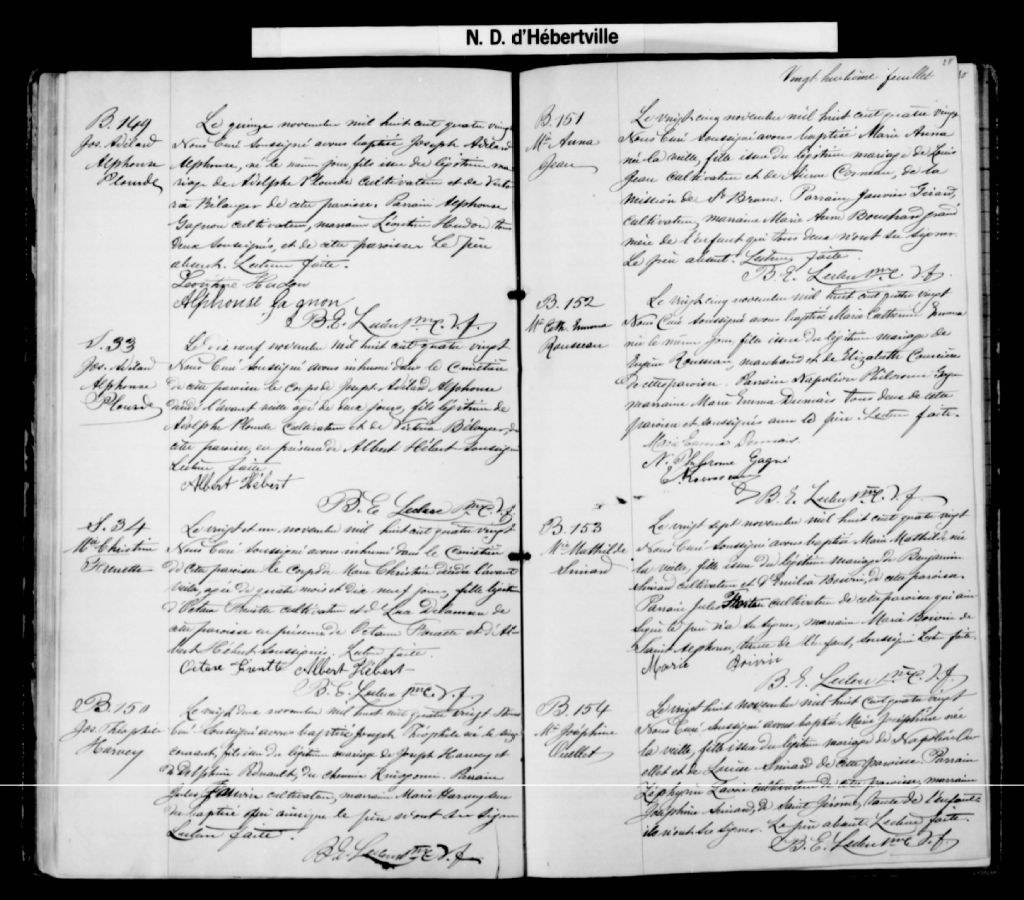 N. D. d'Hébertville
B. 149
Jos. Adélard
Alphonse
Plourde
Le quinze novembre mil huit cent quatre vingt
Nous Curé soussigné avons baptisé Joseph Adélard
Alphonse, né le même jour, fils issu du légitime ma
riage de Adolphe Plourde cultivateur et de Victo
ria Bélanger de cette paroisse. Parrain Alphonse
Gagnon cultivateur, marraine Léontine Hudon tous
deux soussignés, et de cette paroisse. Le père
absent. Lecture faite.
Léontine Hudon
Alphonse Gagnon
B. E. Leclerc ptre C. D. J.
S. 33
Jos. Adélard
Alphonse
Plourde
Le dix neuf novembre mil huit cent quatre vingt
Nous Curé soussigné avons inhumé dans le Cimetière
de cette paroisse le corps de Joseph Adélard Alphonse
décédé l'avant veille agé de deux jours, fils légitime de
Adolphe Plourde Cultivateur et de Victoria Bélanger, de
cette paroisse, en présence de Albert Hébert soussigné
Lecture faite
Albert Hébert
B. E. Leclerc ptre C. D. J.
S. 34
Mie Christine
Le vingt et un novembre mil huit cent quatre vingt
Nous Curé soussigné avons inhumé dans le Cimetière
de cette paroisse le corps de Marie Christine décédée l'avant
veille, agée de quatre mois et dix neuf jours, fille légitime
cultivateur et de de
cette paroisse en présence de Octave et d'Al
bert Hébert soussignés. Lecture faite.
Albert Hébert
B. E. Leclerc ptre C. D. J.
B. 150
Jos. Théophile
Harvey
Le vingt deux novembre mil huit cent quatre vingt Nous
Curé soussigné avons baptisé Joseph Théophile né le
courant, fils issu du légitime mariage de Joseph Harvey et
de Delphine du chemin Kénogami. Parrain
Jules cultivateur, marraine Marie Harvey
du baptisé qui ainsi que le père n'ont su signer
Lecture faite.
B. E. Leclerc ptre C. D. J.
28
Vingt huitième feuillet
B. 151
Mie Anna
Jean
Le vingt cinq novembre mil huit cent quatre vingt
Nous Curé soussigné avons baptisé Marie Anna
née la veille, fille issue du légitime mariage de Louis
Jean cultivateur et de Comeau, de la
mission de St Bruno. Parrain Janvier Girard,
cultivateur, marraine Marie Anne Bouchard grand
mère de l'enfant qui tous deux n'ont su signer.
Le père absent. Lecture faite.
B. E. Leclerc ptre C. D. J.
B. 152
Mie Cath. Emma
Rousseau
Le vingt cinq novembre mil huit cent quatre vingt
Nous Curé soussigné avons baptisé Marie Catherine Emma
née le même jour fille issue du légitime mariage de
Rousseau, marchand et de Elizabeth
de cette paroisse. Parrain Napoléon Philorome Gagné
marraine Marie Emma Dumais tous deux de cette
paroisse et soussignés avec le père. Lecture faite.
Marie Emma Dumais
N. Philorome Gagné
E. Rousseau
B. E. Leclerc ptre C. D. J.
B. 153
Mie Mathilde
Simard
Le vingt sept novembre mil huit cent quatre vingt
Nous Curé soussigné avons baptisé Marie Mathilde née
la veille, fille issue du légitime mariage de Benjamin
Simard cultivateur et d'Emilia Boivin, de cette paroisse.
Parrain Jules cultivateur de cette paroisse qui ain
si que le père n'a su signer, marraine Marie Boivin de
Saint Alphonse, tante de l'enfant, soussignée. Lecture faite.
Marie Boivin
B. E. Leclerc ptre C. D. J.
B. 154
Mie Joséphine
Ouellet
Le vingt huit novembre mil huit cent quatre vingt
Nous Curé soussigné avons baptisé Marie Joséphine née
la veille, fille issue du légitime mariage de Napoléon Ou
ellet et de Louise Simard de cette paroisse. Parrain
Zéphirin Lavoie cultivateur de cette paroisse, marraine
Joséphine Simard, de Saint Jérôme, tante de l'enfant
ils n'ont su signer. Le père absent. Lecture faite.
B. E. Leclerc ptre C. D. J.